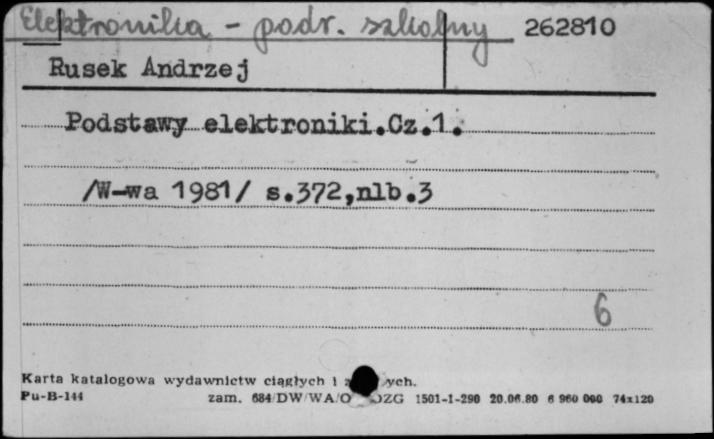 Elektronika - podr. szkolny 262810
Rusek Andrzej
Podstawy elektroniki.Cz.1.
/W-wa 1981/ s.372,nlb.3
6
Karta katalogowa wydawnictw ciągłych i
Pu-B-144 zam. 684/DW/WA/O OZG 1501-1-290 20.06.80 6 960 000 74x120